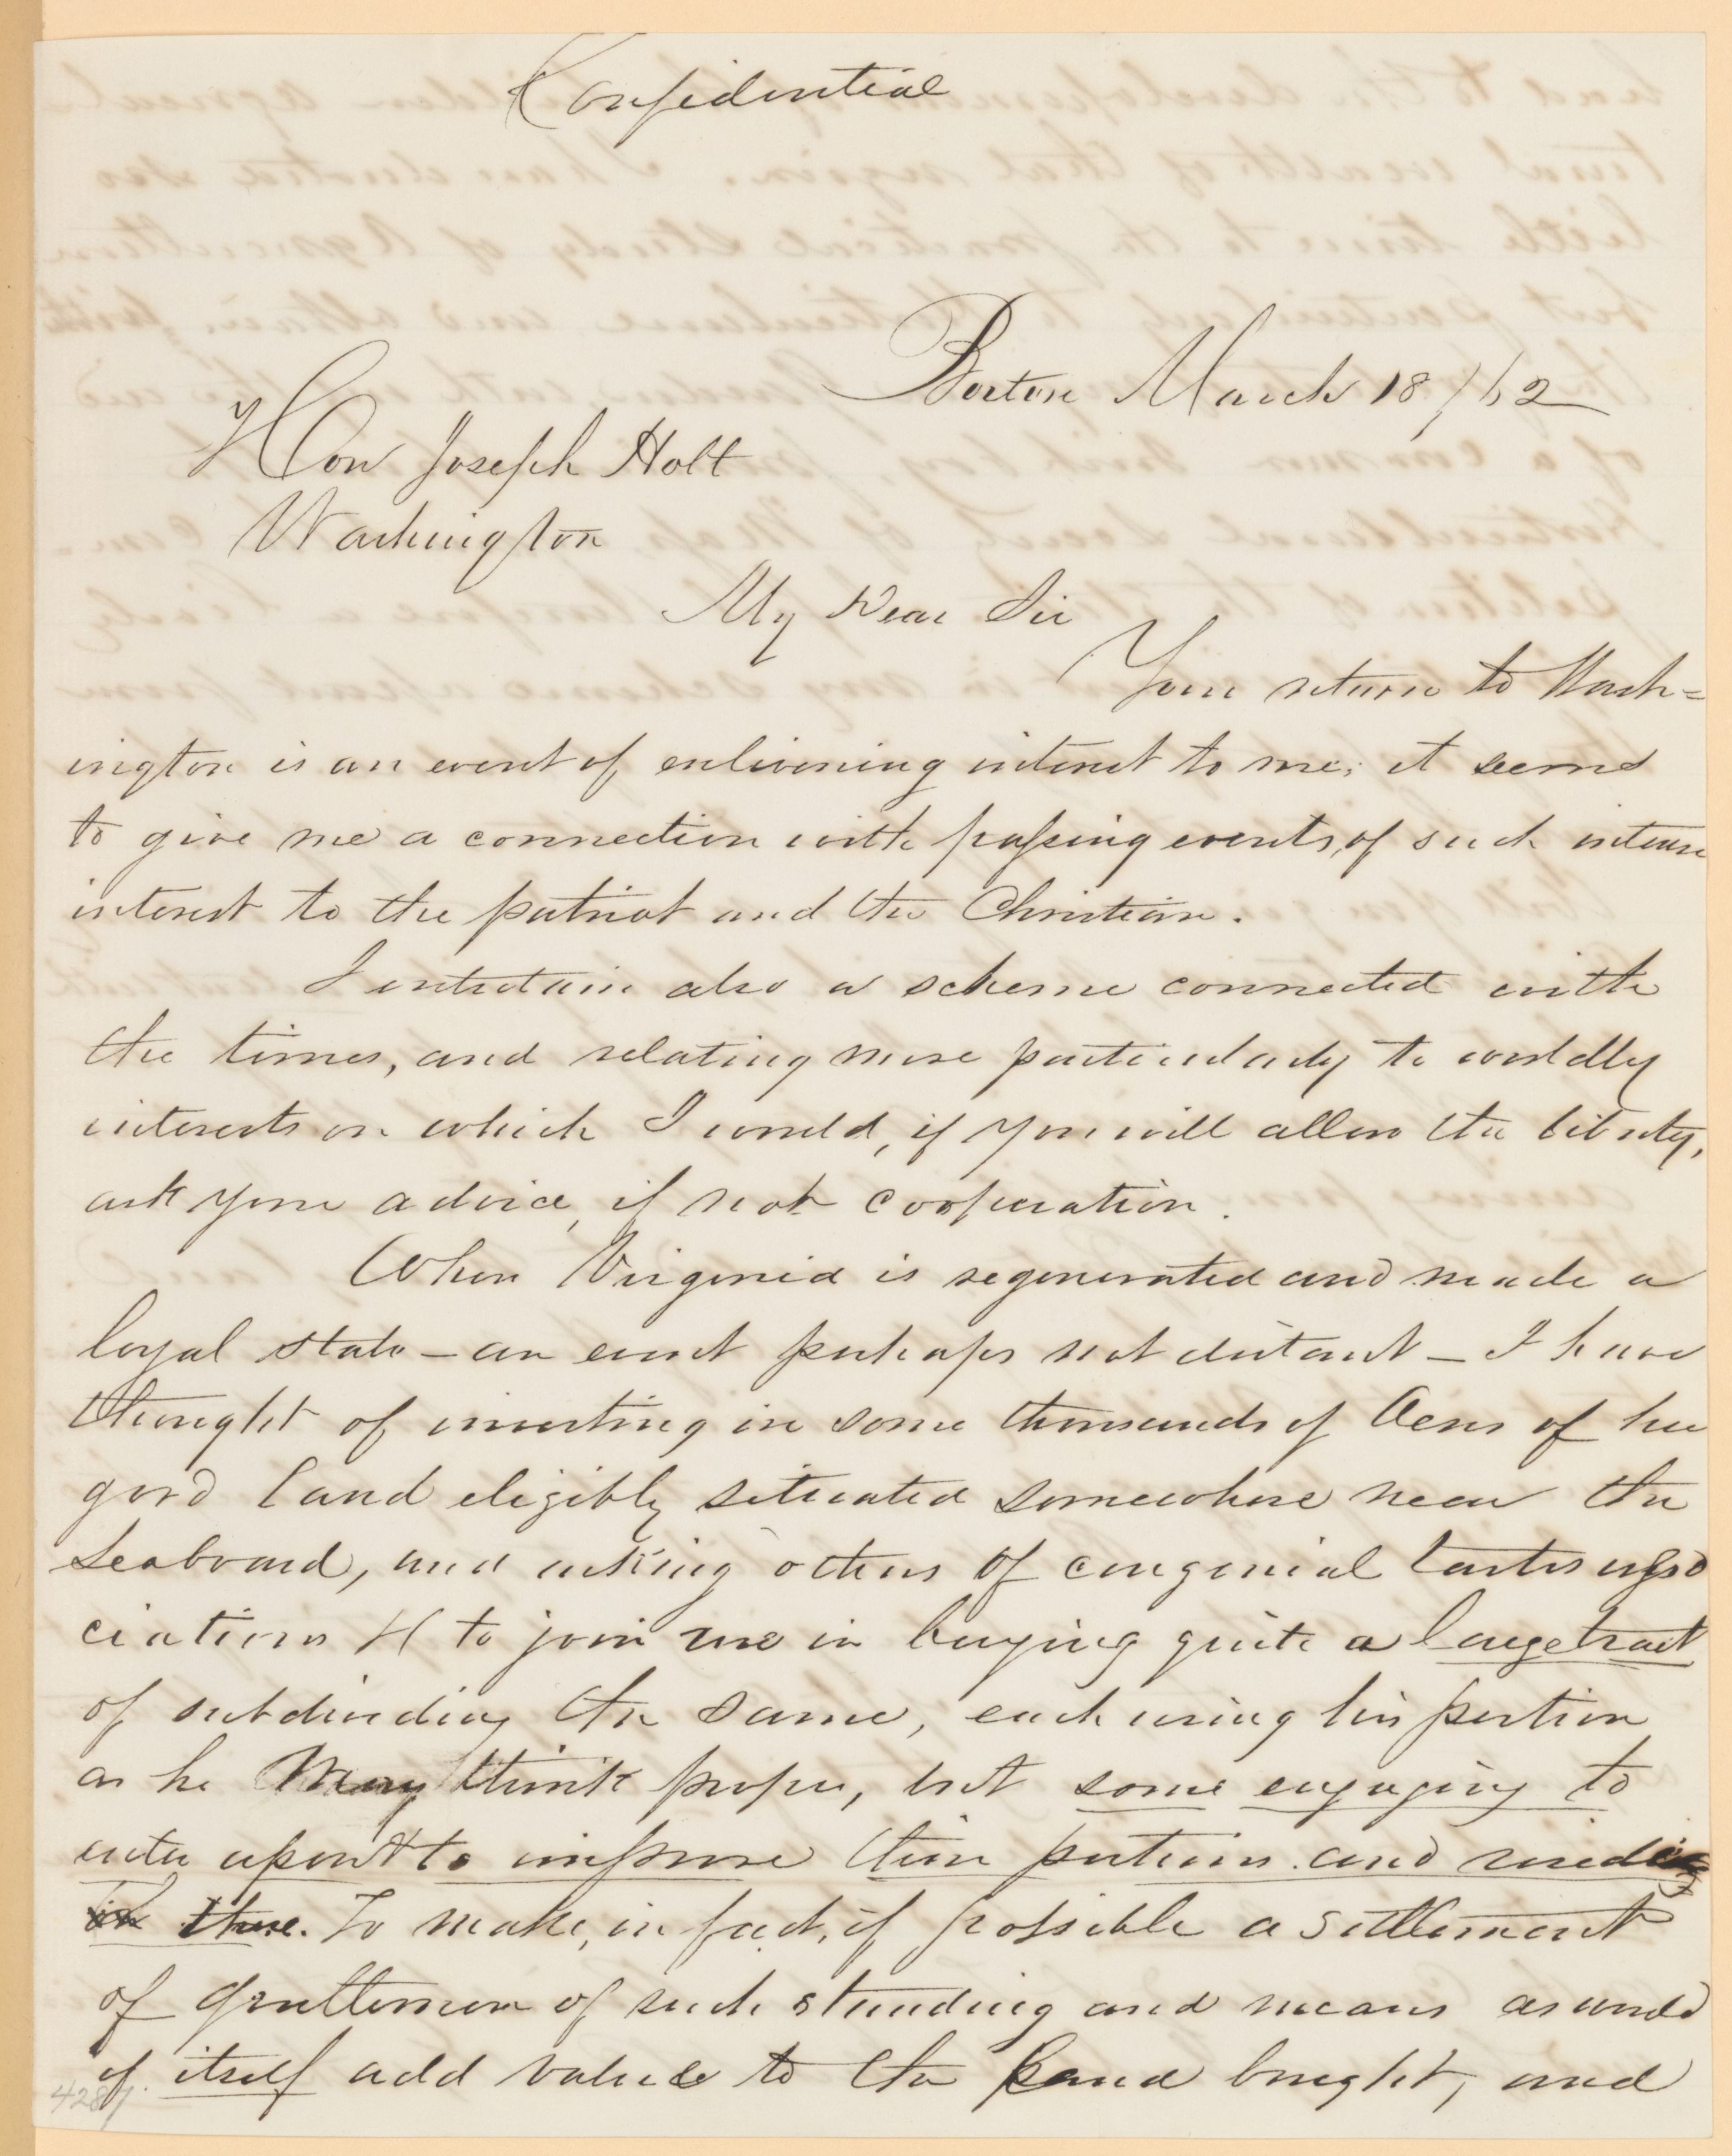 Confidential
Boston March 18/62
Hon Joseph Holt
Washington
My Dear Sir
Your return to Wash=
ington is an event of enlivening interest to me; it seems
to give me a connection with passing events, of such intense
interest to the patriot and the Christian.
I entertain also a scheme connected with
the times, and relating more particularly to worldly
interests on which I would, if you will allow the liberty,
ask your advice, if not cooperation.
When Virginia is regenerated and made a
loyal state – an event perhaps not distant – I have
thought of investing in some thousands of Acres of her
good land eligibly situated somewhere near the
Seaboard, and asking others of congenial tastes asso
ciations &c to join me in buying quite a large tract
of subdividing the same, each using his portion
as he may think proper, but some engaging to
enter upon & to improve their portions and reside
in these. To make, in fact, if possible a settlement
of Gentlemen of such standing and means as would
of itself add value to the land bought, and
4287